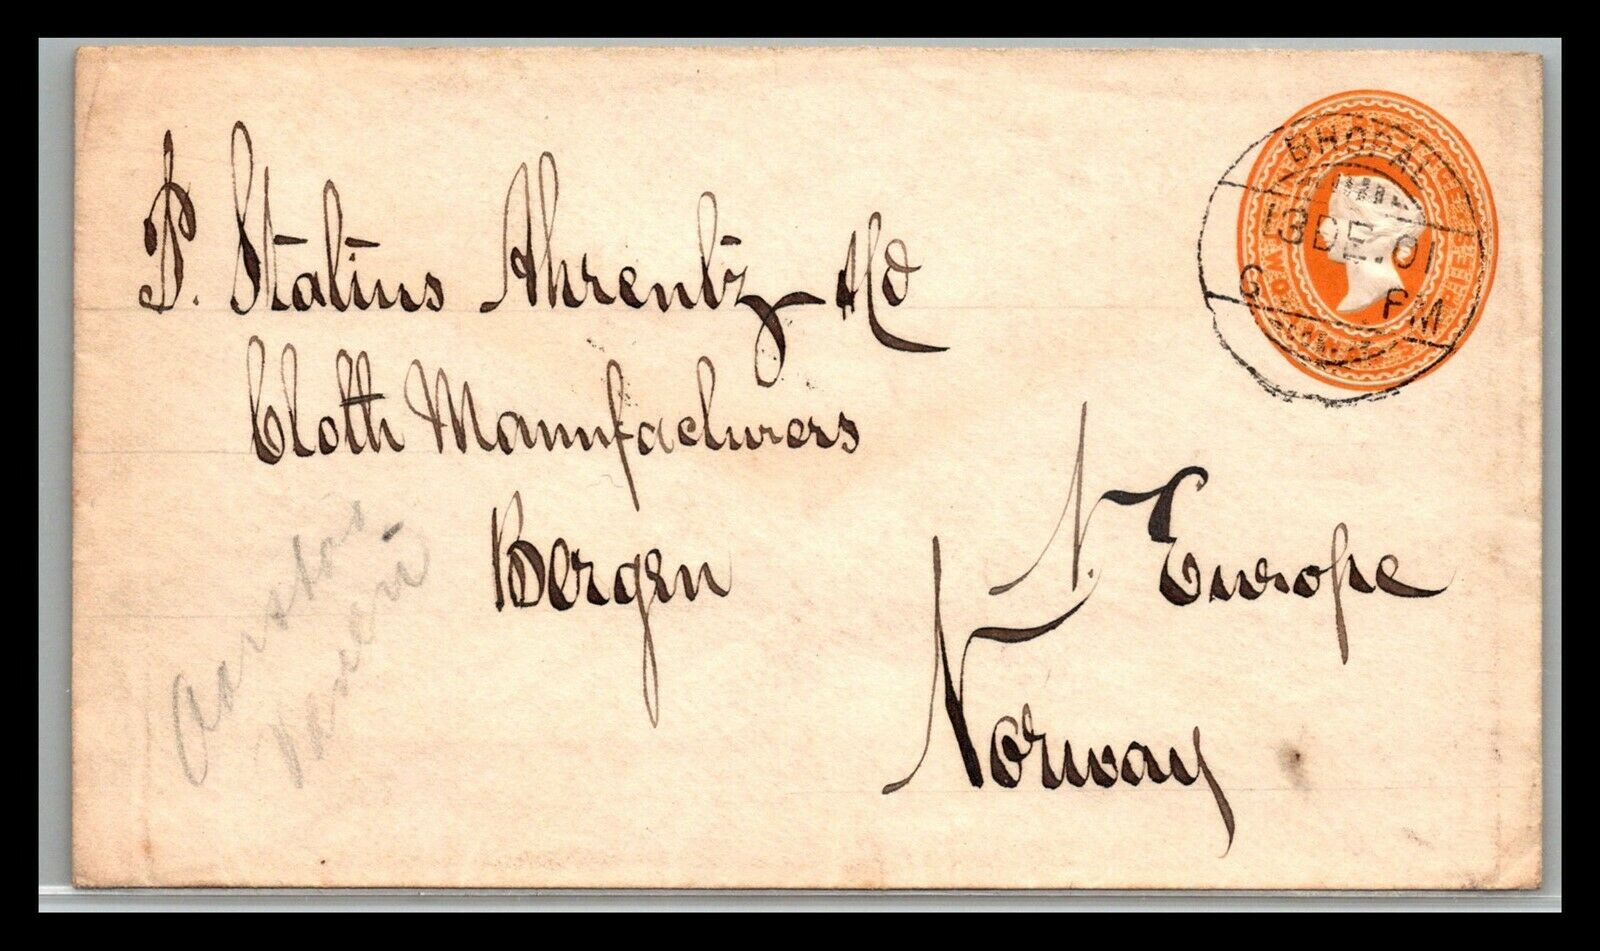 BHOPAL
13 DE. 01
6 PM
P. Stalius Ahrentz & Co
Cloth Manufacturers
Bergen
N. Europe
Norway